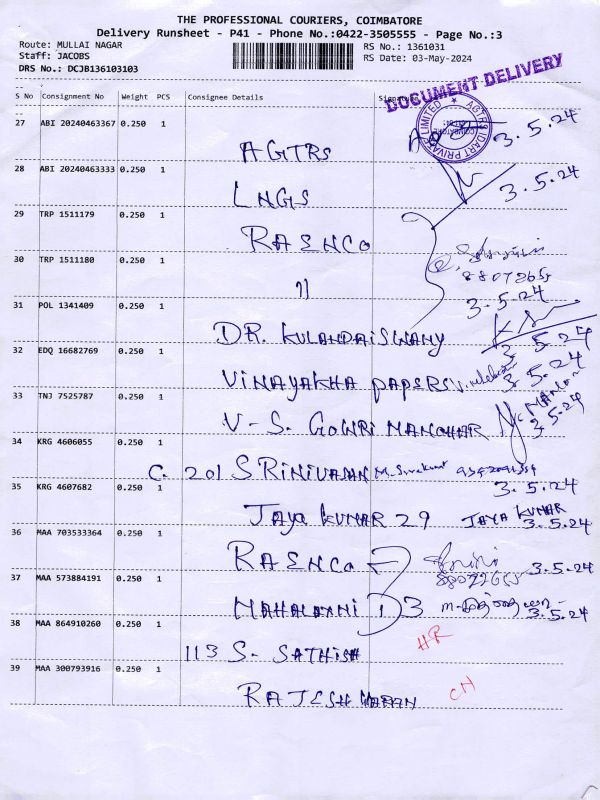 THE PROFESSIONAL COURIERS, COIMBATORE
Delivery Runsheet - P41 - Phone No.:0422-3505555 - Page No.:3
Route: MULLAI NAGAR
RS No.: 1361031
Staff: JACOBS
RS Date: 03-May-2024
DRS No.: DCJB136103103
DOCUMENT DELIVERY
S No Consignment No Weight PCS Consignee Details Signature
27 ABI 20240463367 0.250 1
AGTRS 3.5.24
28 ABI 20240463333 0.250 1
LNGS 3.5.24
29 TRP 1511179 0.250 1
RAENCO
30 TRP 1511180 0.250 1
11 3.5.24
31 POL 1341409 0.250 1
DR. KULANDAISWAMY 3.5.24
32 EDQ 16682769 0.250 1
VINAYAKHA PAPERS 3.5.24
33 TNJ 7525787 0.250 1
V-S. GOWRI MANOHAR 3.5.24
34 KRG 4606055 0.250 1
C. 201 SRINIVASAN 3.5.24
35 KRG 4607682 0.250 1
JAYA KUMAR 29 JAYA KUMAR 3.5.24
36 MAA 703533364 0.250 1
RAENCO 3.5.24
37 MAA 573884191 0.250 1
MAHALAXMI 3 3.5.24
38 MAA 864910260 0.250 1
113 S- SATHISH HR
39 MAA 300793916 0.250 1
CH